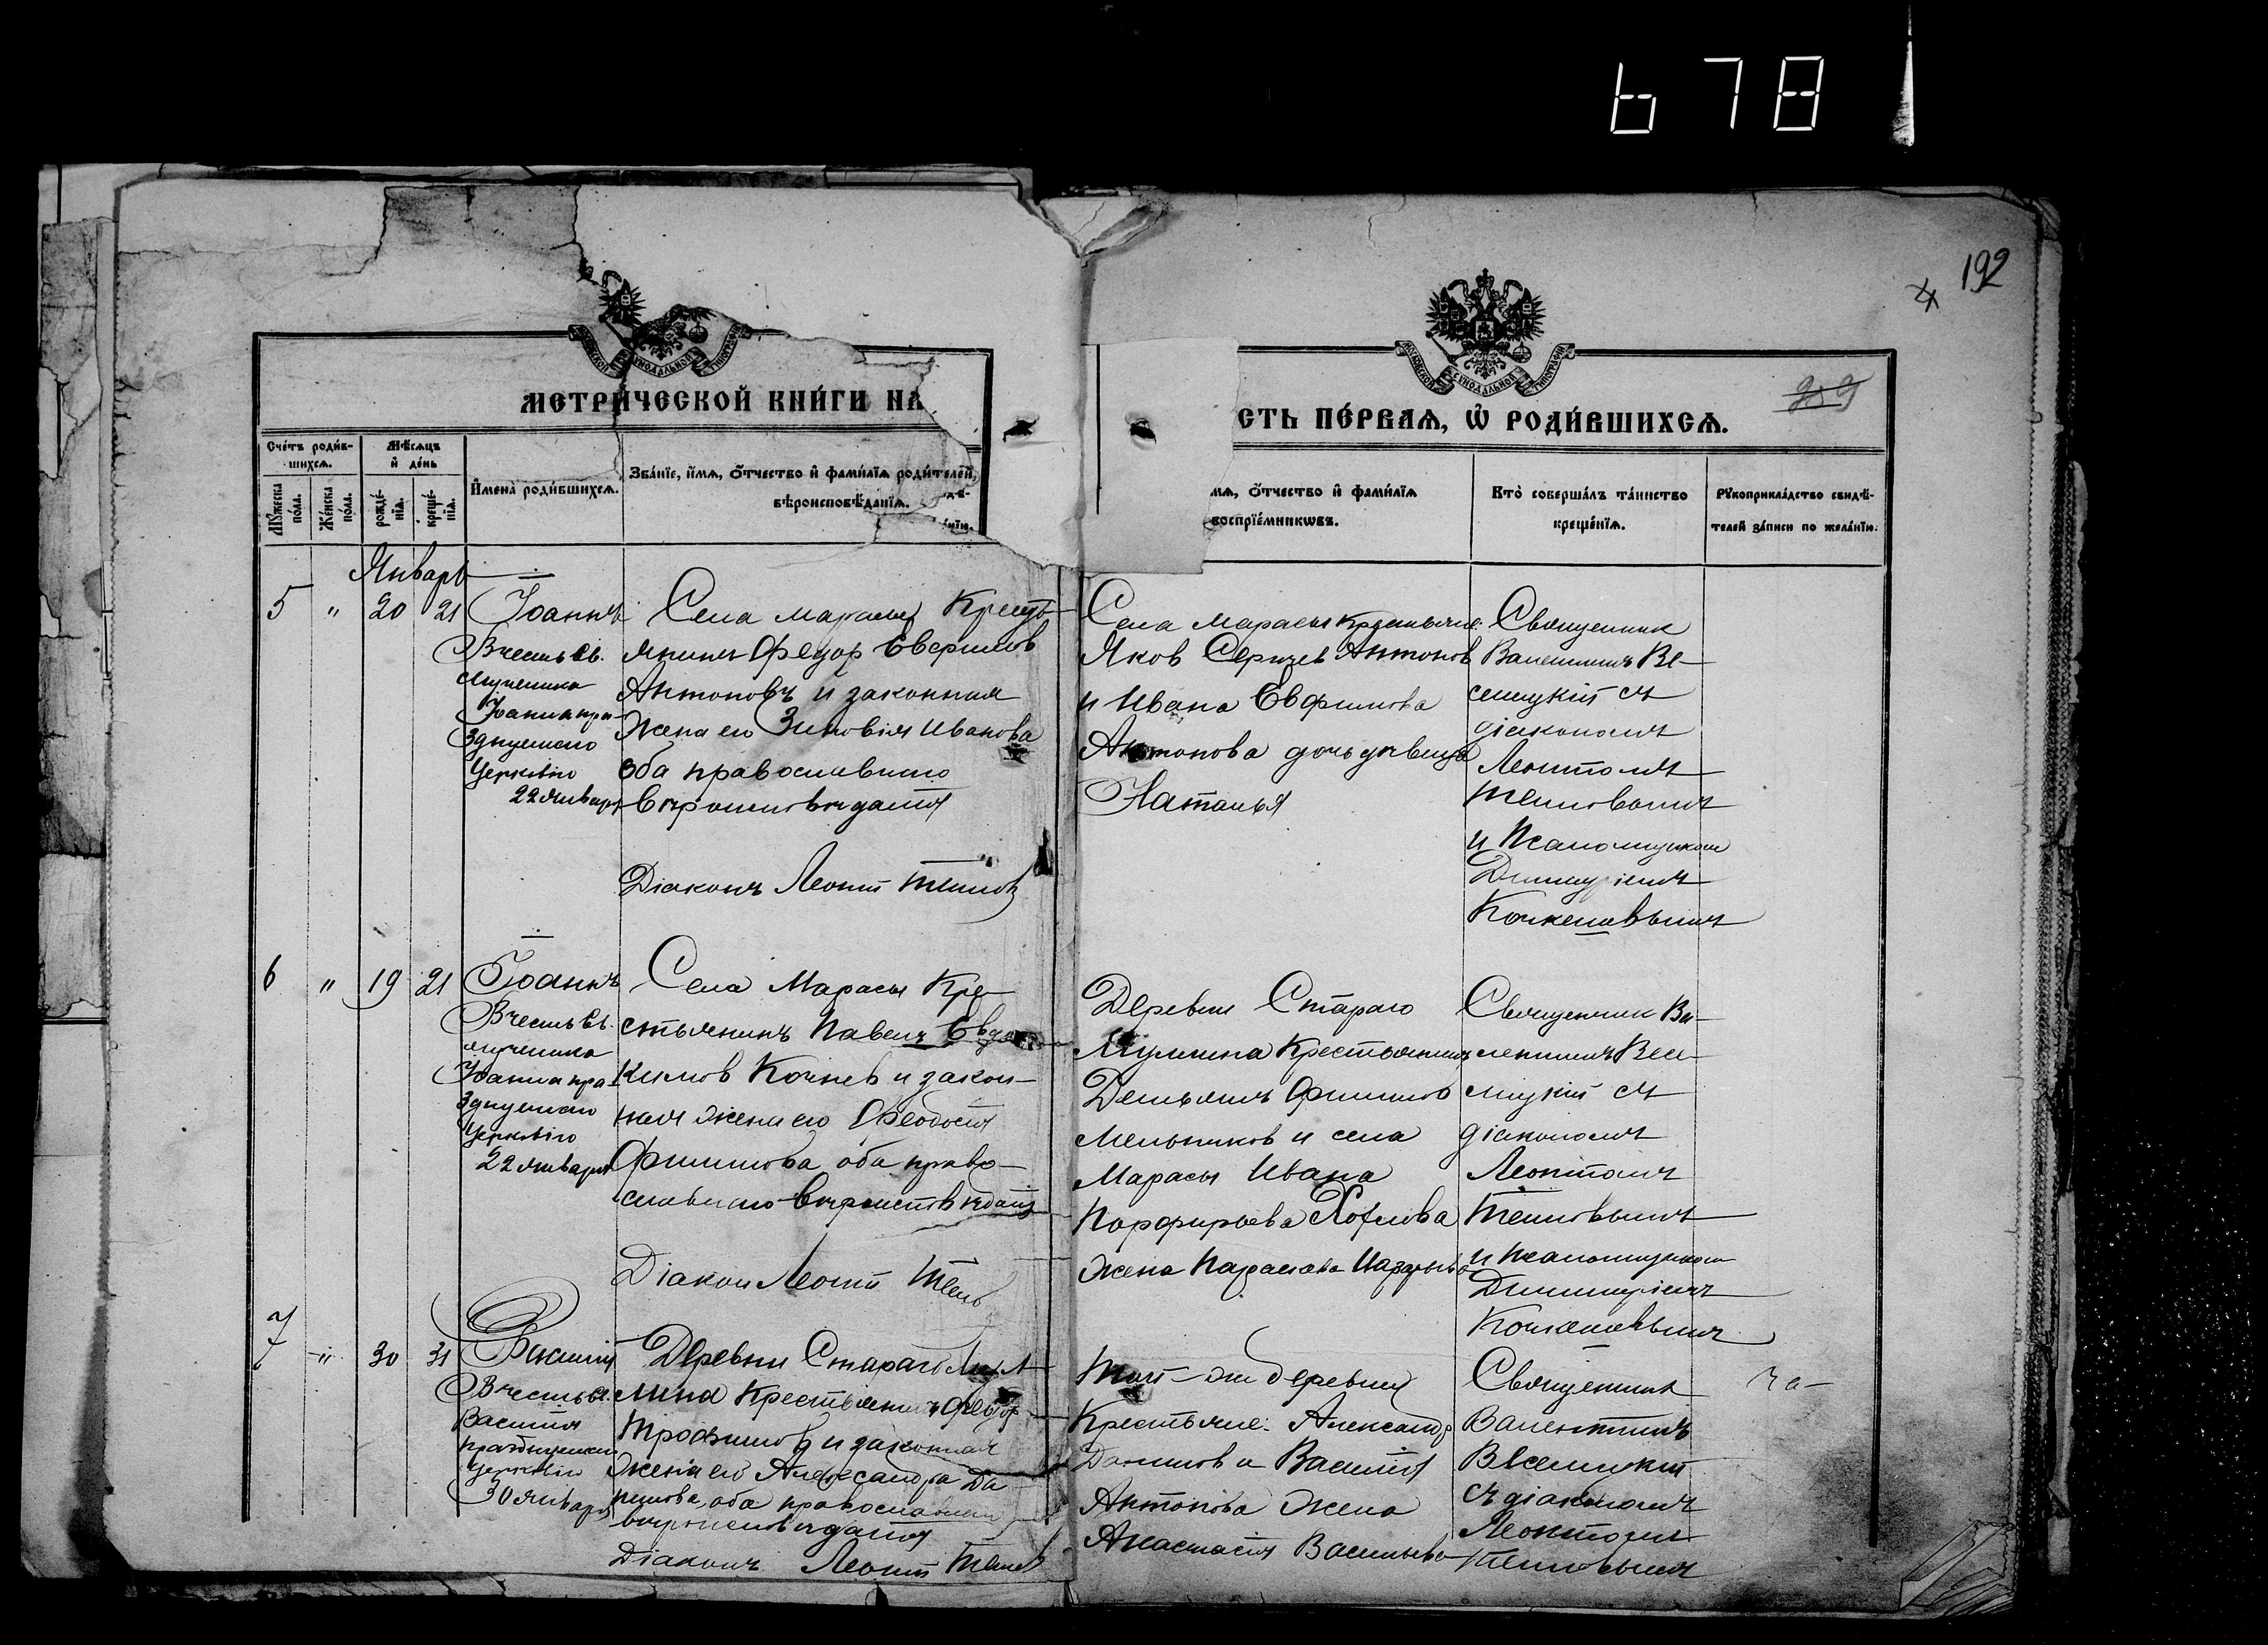 678
192
МОСКОВСКОЙ СѴНОДАЛЬНОЙ ТИПОГРАФІИ
МОСКОВСКОЙ СѴНОДАЛЬНОЙ ТИПОГРАФІИ
МЕТРИ́ЧЕСКОЙ КНИ́ГИ НА
СТЬ ПЕ́РВАЯ, Ѽ РОДИ́ВШИХСѦ.
Сче́тъ роди́в-
шихсѧ.
Мѣ́сѧцъ
и҆ де́нь
Мꙋ́жеска
по́ла.
Же́нска
по́ла.
рожде́-
нїѧ.
креще́-
нїѧ.
И҆мена̀ роди́вшихсѧ.
Зва́нїе, и҆́мѧ, ѻ҆́тчество и҆ фами́лїѧ роди́телей,
вѣроисповѣ́данїѧ.
мѧ, ѻ҆́тчество и҆ фами́лїѧ
воспрїе́мникѡвъ.
Кто̀ соверша́лъ та́инство
креще́нїѧ.
Рꙋкоприкла́дство свидѣ́-
телей за́писи по жела́нїю.
Январь
5 " 20 21
Іоаннъ
В честь св.
мученика
Іоанна пра-
зднуемаго
Церквію
22 января
Села Марасы Кресть-
янинъ Федор Евфимов
Антоновъ и законная
жена его Зиновія Иванова
оба православнаго
вѣроисповѣданія
Діаконъ Леонтій Тепловъ
Села Марасы Крестьяне:
Яков Сергеев Антонов
и Ивана Евфимова
Антонова дочь девица
Наталья
Священник
Валентинъ Ве-
селицкій съ
діакономъ
Леонтіемъ
Тепловымъ
и Псаломщиком
Димитріемъ
6 " 19 21
Іоаннъ
В честь св.
мученика
Іоанна пра-
зднуемаго
Церквію
22 января
Села Марасы Кре-
стьянинъ Павелъ Евдо-
кимов Кочнев и закон-
ная жена его Феодосія
Филипова, оба право-
славнаго вѣроисповѣданія
Діакон Леонтій Тепловъ
Деревни Стараго
Мулкина Крестьянинъ
Демьянъ Филипов
Мельников и села
Марасы Ивана
Порфирьева
жена Параскева Назарьева
Священник Ва-
лентинъ Весе-
лицкій съ
діакономъ
Леонтіемъ
Тепловымъ
и Псаломщиком
Димитріемъ
7 " 30 31
Василій
В честь св.
Василія
празднуемаго
Церквію
30 января
Деревни Стараго Мул-
кина Крестьянинъ Федор
Трофимов и законная
жена его Александра Да-
нилова, оба православнаго
вѣроисповѣданія
Діаконъ Леонтій Тепловъ
Той-же деревни
Крестьяне: Александр
Данилов и Василія
Антонова жена
Анастасія Васильева
Священник
Валентинъ
Веселицкій
съ діакономъ
Леонтіемъ
Тепловымъ